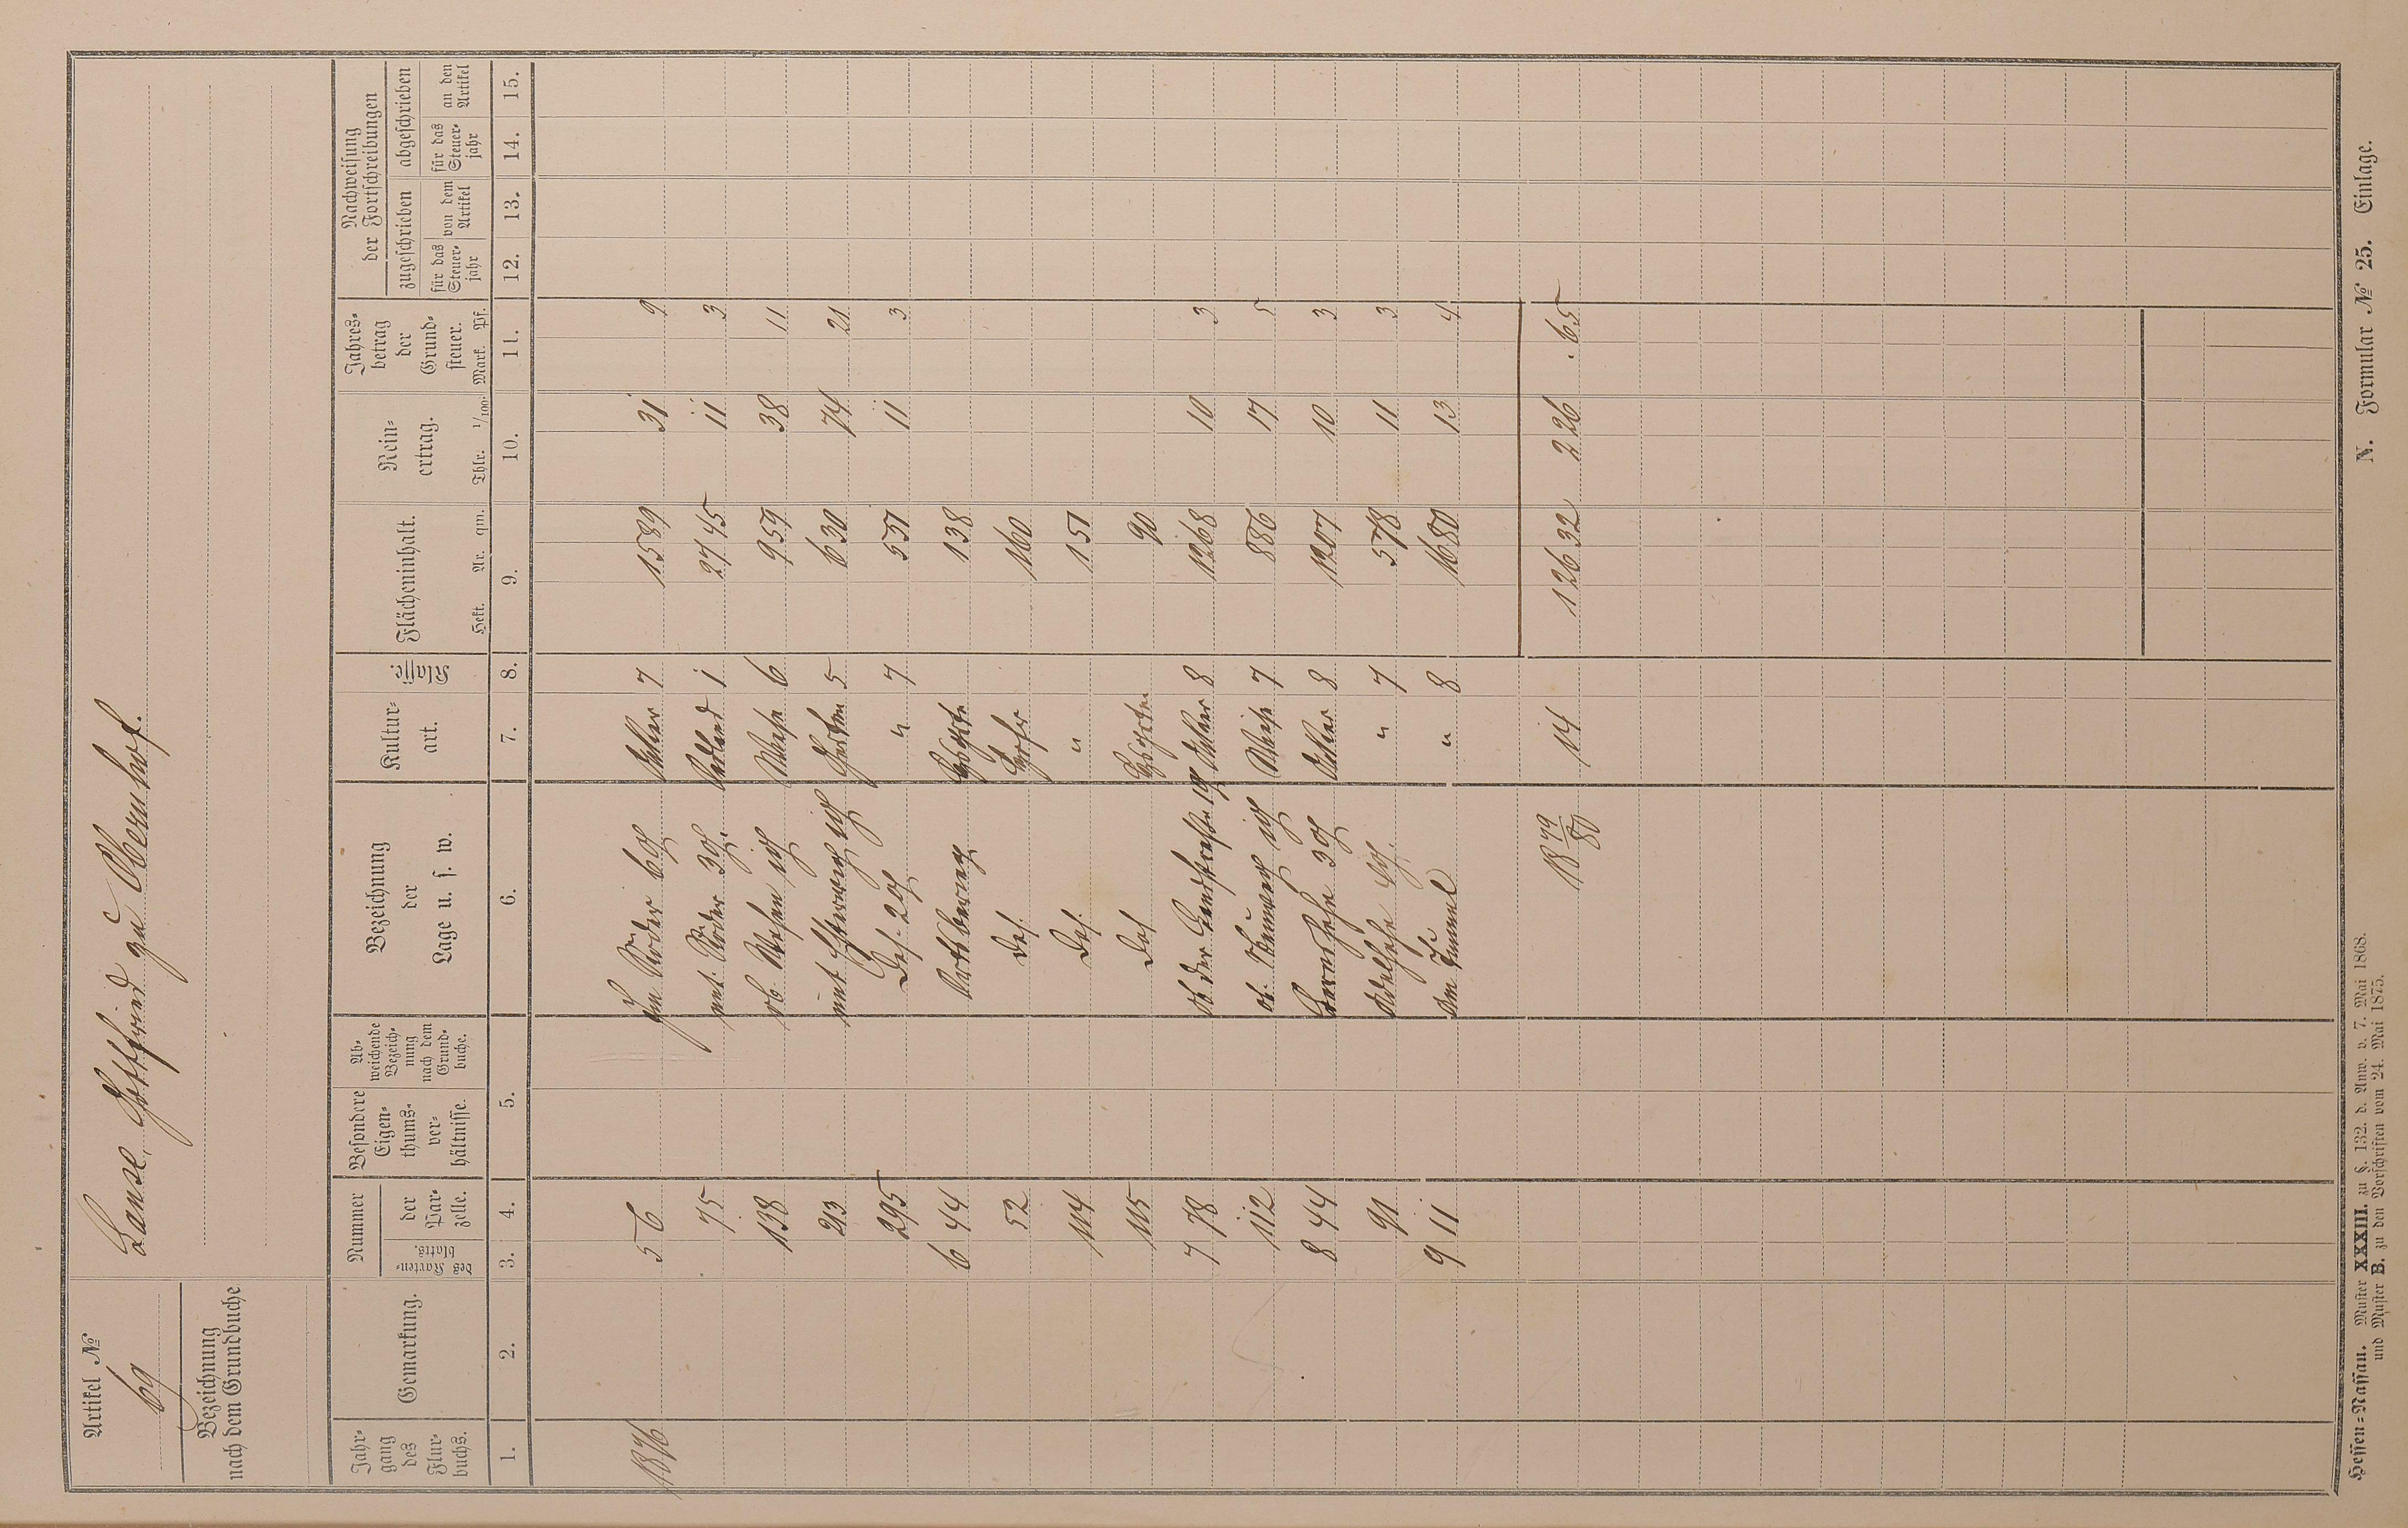 Artikel №
69
Bezeichnung
nach dem Grundbuche
Lanse, Gottfried zu Obernhof.
Jahr-
gang
des
Flur-
buchs.
Gemarkung.
Nummer
des Karten-
blatts.
der
Par-
zelle.
Besondere
Eigen-
thums-
ver-
hältnisse.
Ab-
weichende
Bezeich-
nung
nach dem
Grund-
buche.
Bezeichnung
der
Lage u. s. w.
Kultur-
art.
Klasse.
Flächeninhalt.
Hekt. Ar. qm.
Rein-
ertrag.
Thlr. 1/100.
Jahres-
betrag
der
Grund-
steuer.
Mark. Pf.
Nachweisung
der Fortschreibungen
zugeschrieben
abgeschrieben
für das
Steuer-
jahr
von dem
Artikel
für das
Steuer-
jahr
an den
Artikel
1. 2. 3. 4. 5. 6. 7. 8. 9. 10. 11. 12. 13. 14. 15.
1876 5 6 Röder Acker 7 1589 31 9
75 unt. Röder 3 1 2745 11 3
138 ob. Wiese 6 959 38 11
213 unt Garten 5 630 74 21
295 Des. 2 " 7 531 11 3
6 44 138
52 Des. 160
114 Des. 151
115 Des 90
7 78 Ob der Acker 8 1268 10 3
112 ob. Wiese 7 886 17 5
8 44 3 Acker 8 1207 10 3
91 " 7 578 11 3
9 11 Am Tunnel " 8 1680 13 4
1879/80 14 12632 226 . 65
Hessen-Nassau. Muster XXXIII. zu §. 132. d. Anw. v. 7. Mai 1868.
und Muster B. zu den Vorschriften vom 24. Mai 1875.
N. Formular № 25. Einlage.